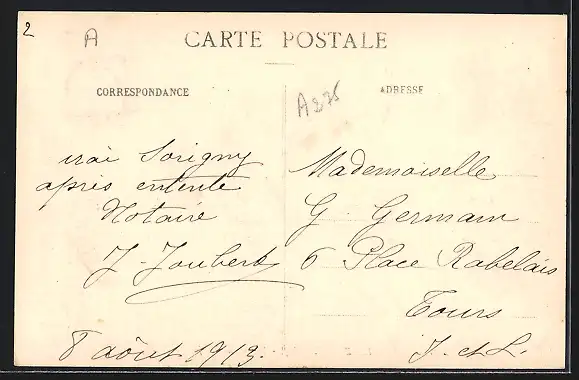 2
A
CARTE POSTALE
CORRESPONDANCE
A275
ADRESSE
irai Sorigny
après entente
Notaire
J. Joubert
8 août 1913.
Mademoiselle
G. Germain
6 Place Rabelais
Tours
I. et L.